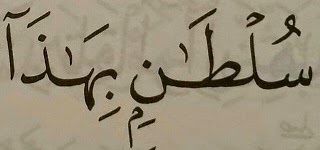 سُلْطَٰنِۭ بِهَٰذَآ